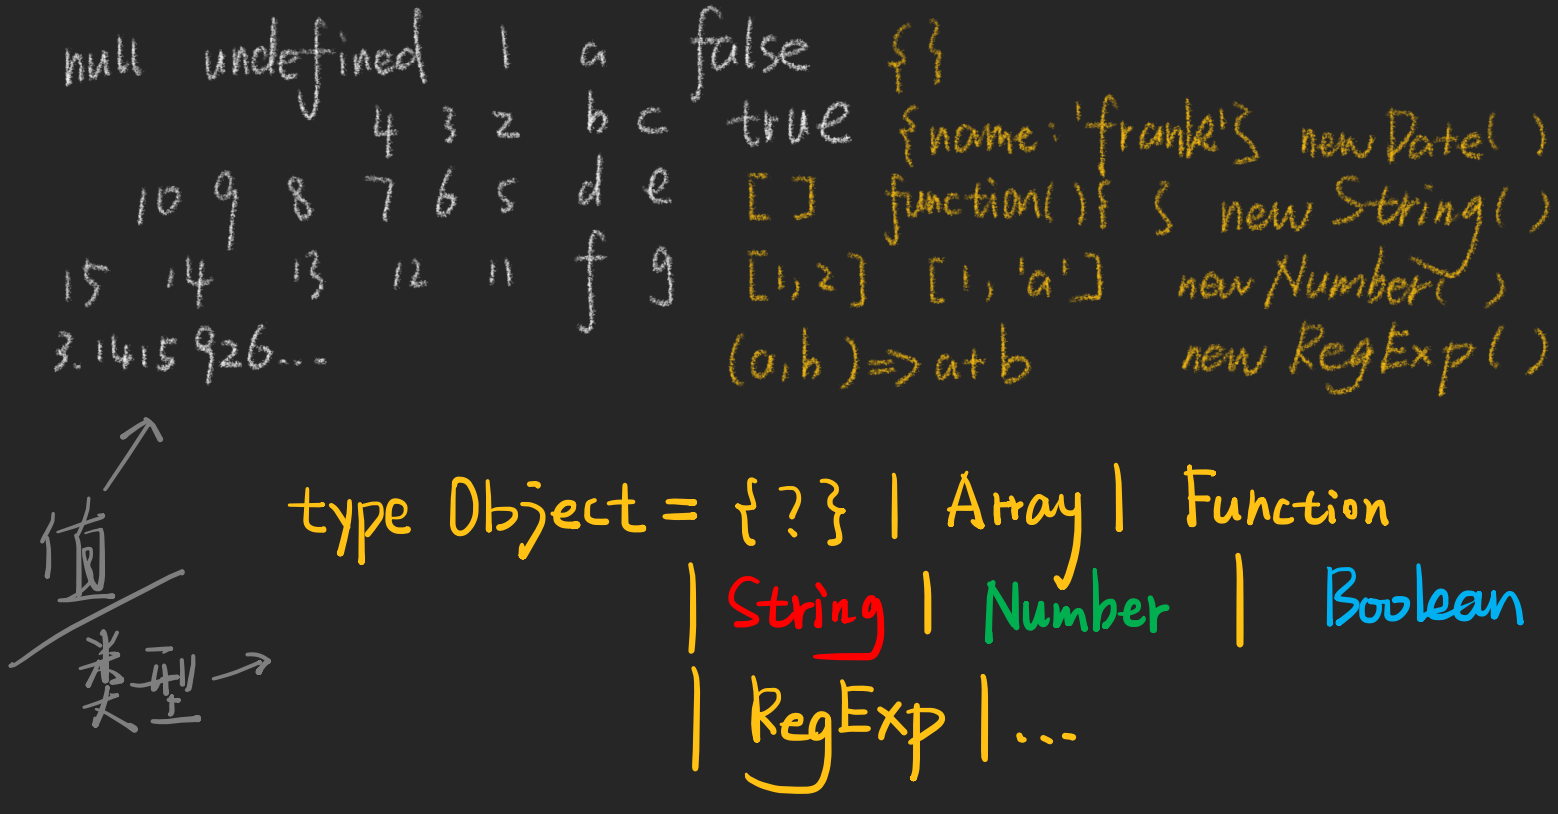 null undefined 1 a false { }
4 3 2 b c true {name: 'frank'} new Date( )
10 9 8 7 6 5 d e [ ] function( ){ } new String( )
15 14 13 12 11 f g [1, 2] [1, 'a'] new Number( )
3.1415926... (a, b) => a+b new RegExp( )
值
类型
type Object = {?} | Array | Function
| String | Number | Boolean
| RegExp | ...